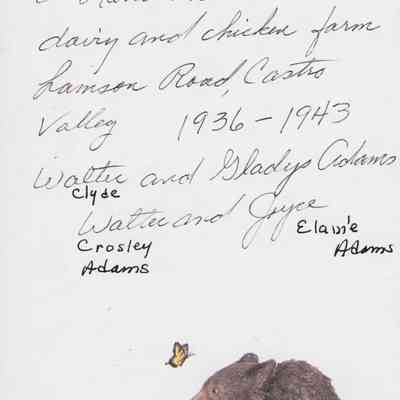 dairy and chicken farm
Lamson Road, Castro
Valley 1936 - 1943
Walter and Gladys Adams
Clyde
Walter and Joyce
Crosley Elaine
Adams Adams